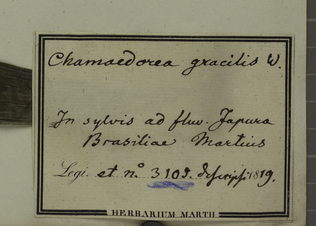 Chamaedorea gracilis W.
In sylvis ad fluv. Japura
Brasiliae Martius
Legi. et n.º 3105. descripsi 1819.
HERBARIUM MARTII